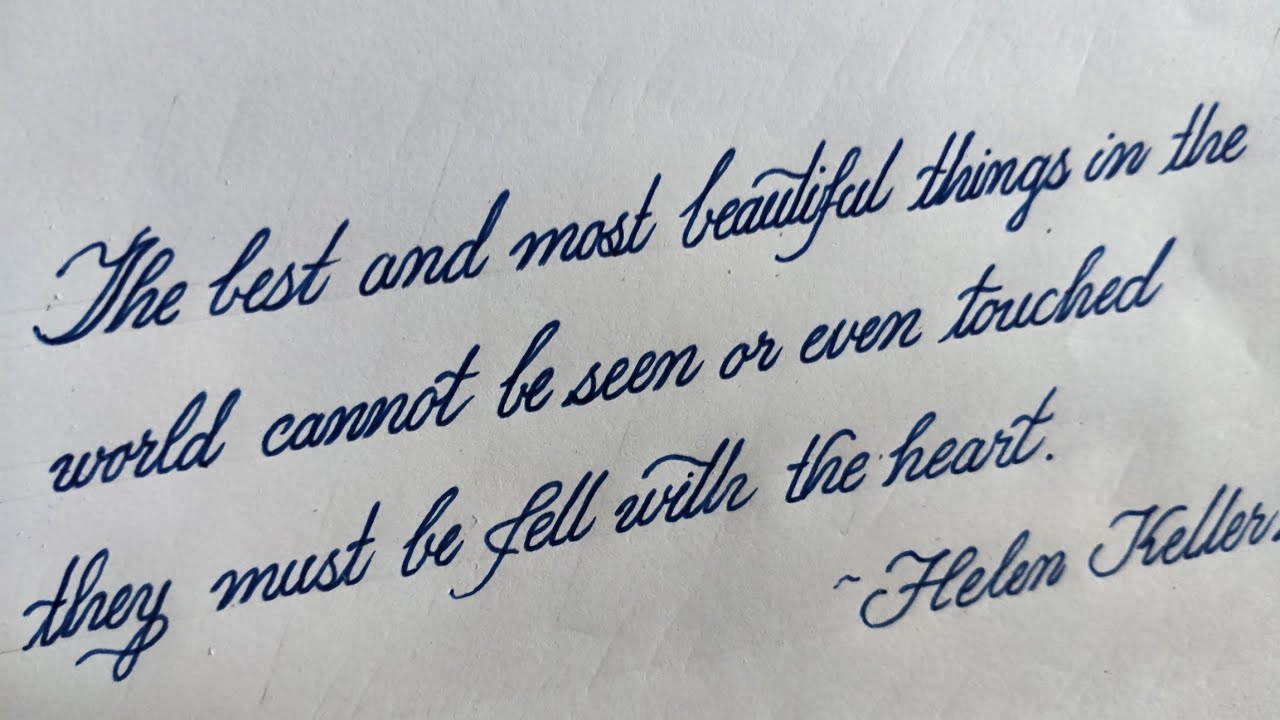 The best and most beautiful things in the
world cannot be seen or even touched
they must be fell with the heart.
~Helen Keller.